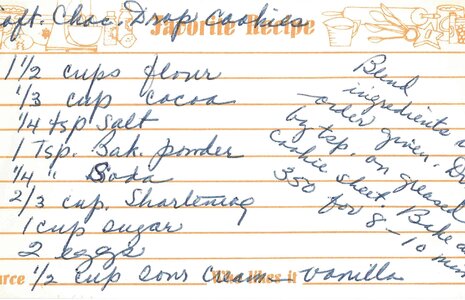 Soft. Choc. Drop cookies
Favorite Recipe
1 1/2 cups flour
1/3 cup cocoa
1/4 tsp salt
1 Tsp. Bak. powder
1/4 " Soda
2/3 cup. Shortening
1 cup sugar
2 eggs
1/2 cup sour cream - vanilla
likes it
Blend
ingredients
order given. D
by tsp. on greased
cookie sheet. Bake a
350 for 8-10 min